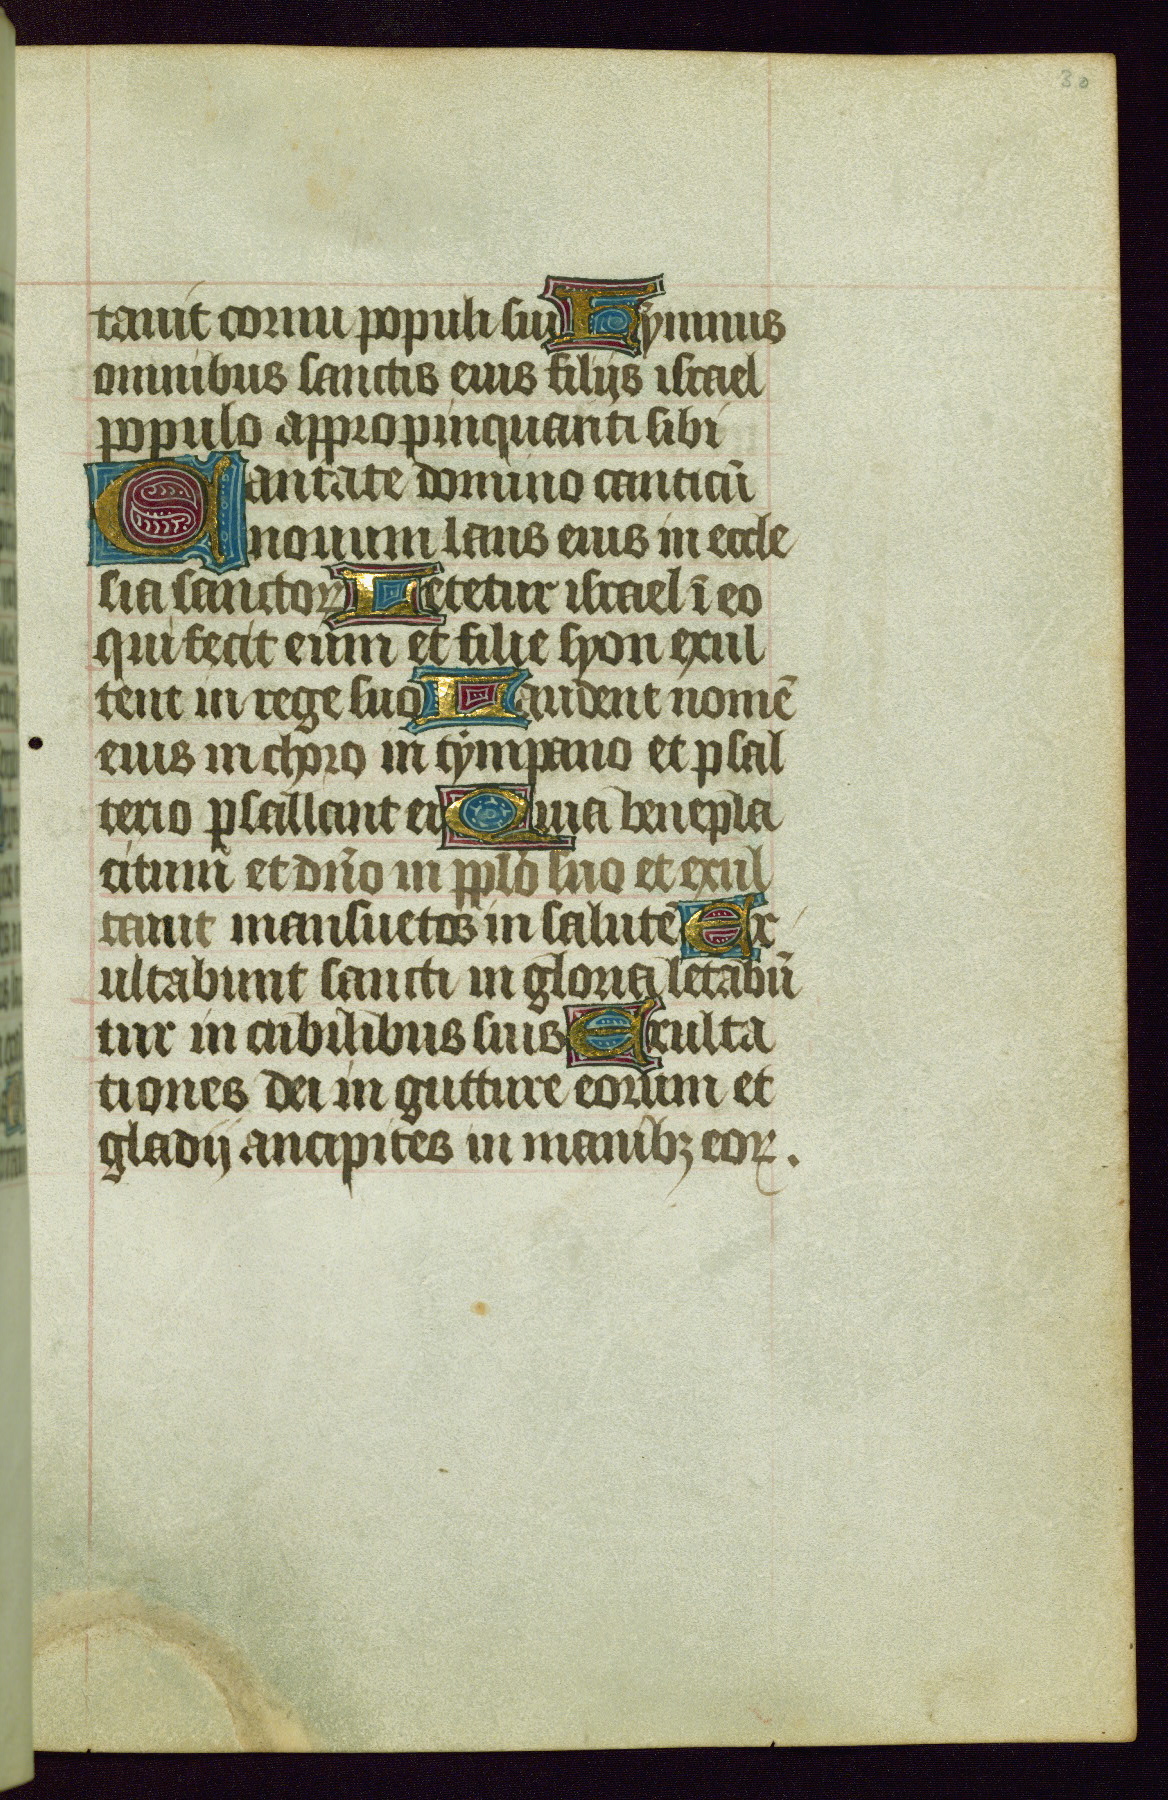 30
tauit cornu populi sui Hymnus
omnibus sanctis eius filijs israel
populo appropinquanti sibi
Cantate domino canticū
nouum laus eius in eccle
sia sanctoꝝ Letetur israel ī eo
qui fecit eum et filie syon exul
tent in rege suo Laudent nomē
eius in choro in tympano et psal
terio psallant ei Quia benepla
citum est dn̄o in pp̄lo suo et exul
tauit mansuetos in salutē Ex
ultabunt sancti in gloria letabū
tur in cubilibus suis Exulta
tiones dei in gutture eorum et
gladij ancipites in manibꝫ eoꝝ.